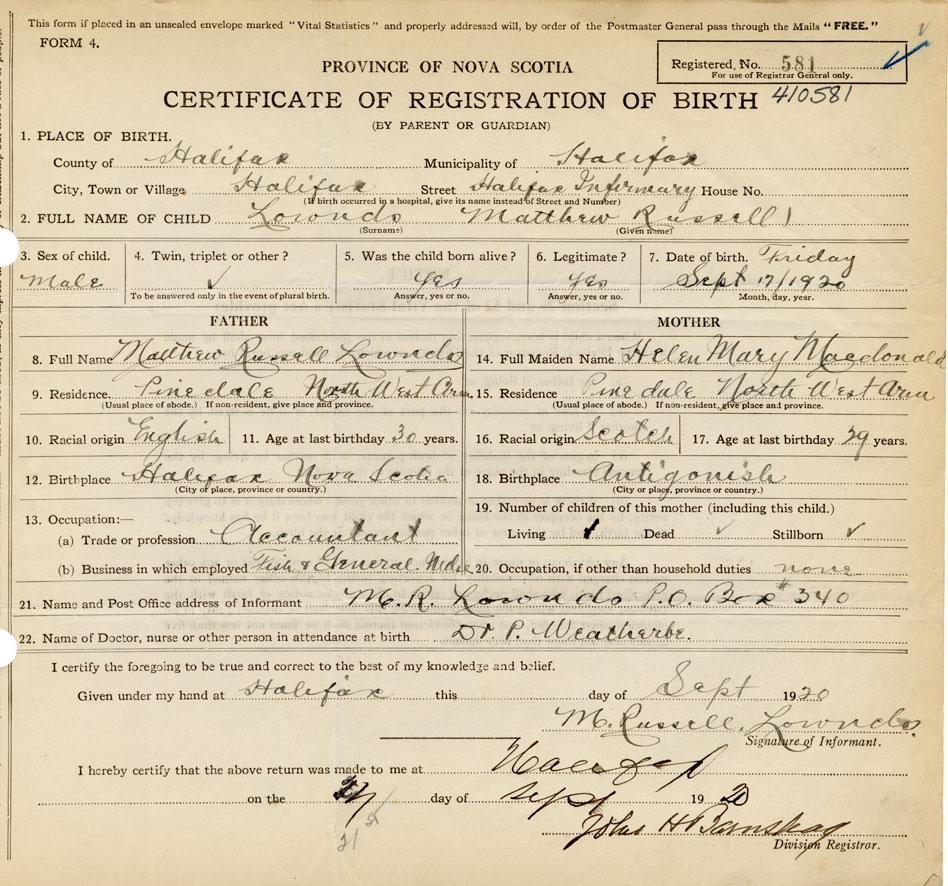 This form if placed in an unsealed envelope marked "Vital Statistics" and properly addressed will, by order of the Postmaster General pass through the Mails "FREE."
FORM 4.
Registered, No. 581
For use of Registrar General only.
PROVINCE OF NOVA SCOTIA
CERTIFICATE OF REGISTRATION OF BIRTH 410581
(BY PARENT OR GUARDIAN)
1. PLACE OF BIRTH.
County of Halifax Municipality of Halifax
City, Town or Village Halifax Street Halifax Infirmary House No.
(If birth occurred in a hospital, give its name instead of Street and Number)
2. FULL NAME OF CHILD Lownds Matthew Russell
(Surname) (Given name)
3. Sex of child. 4. Twin, triplet or other? 5. Was the child born alive? 6. Legitimate? 7. Date of birth. Friday
Male ✓ Yes Yes Sept 17/1920
To be answered only in the event of plural birth. Answer, yes or no. Answer, yes or no. Month, day, year.
FATHER MOTHER
8. Full Name Matthew Russell Lownds 14. Full Maiden Name Helen Mary Macdonald
9. Residence. Pinedale North West Arm 15. Residence Pinedale North West Arm
(Usual place of abode.) If non-resident, give place and province. (Usual place of abode.) If non-resident, give place and province.
10. Racial origin English 11. Age at last birthday 30 years. 16. Racial origin Scotch 17. Age at last birthday 29 years.
12. Birthplace Halifax Nova Scotia 18. Birthplace Antigonish
(City or place, province or country.) (City or place, province or country.)
13. Occupation:— 19. Number of children of this mother (including this child.)
(a) Trade or profession Accountant Living ✓ Dead ✓ Stillborn ✓
(b) Business in which employed Fish & General Mdse 20. Occupation, if other than household duties none
21. Name and Post Office address of Informant M. R. Lownds P.O. Box # 340
22. Name of Doctor, nurse or other person in attendance at birth Dr. P. Weatherbe.
I certify the foregoing to be true and correct to the best of my knowledge and belief.
Given under my hand at Halifax this day of Sept 1920
M. Russell Lownds.
Signature of Informant.
I hereby certify that the above return was made to me at Halifax
on the day of Sept 1920
21st
John H Barnstead
Division Registrar.